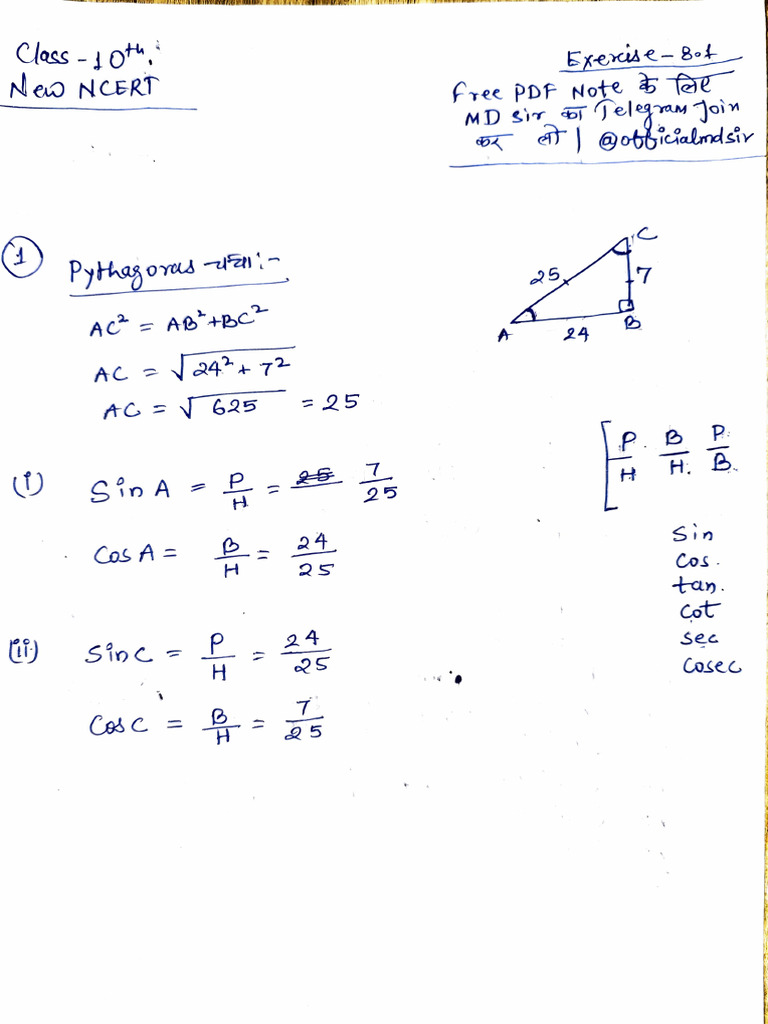 Class - 10th :
New NCERT
Exercise - 8.1
free PDF Note के लिए
MD Sir का Telegram Join
कर लो | @officialmdsir
1
Pythagoras :-
AC² = AB² + BC²
AC = √24² + 7²
AC = √625 = 25
C
25
7
A
24
B
(i) Sin A = P/H = 25 7/25
Cos A = B/H = 24/25
[ P/H B/H P/B
Sin
Cos
tan
Cot
Sec
Cosec
(ii) Sin C = P/H = 24/25
Cos C = B/H = 7/25